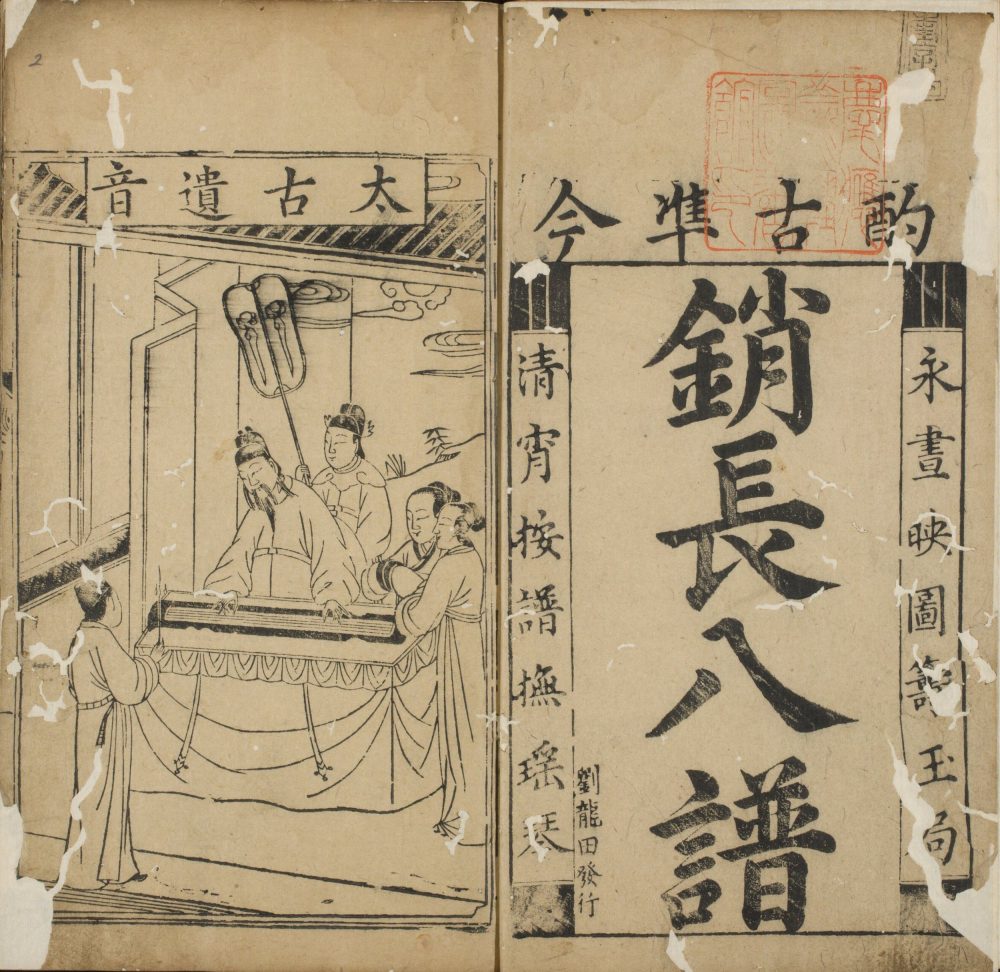 酌古準今
永晝映圖籌玉局
銷長八譜
劉龍田發行
清宵按譜撫瑶琴
太古遺音
2